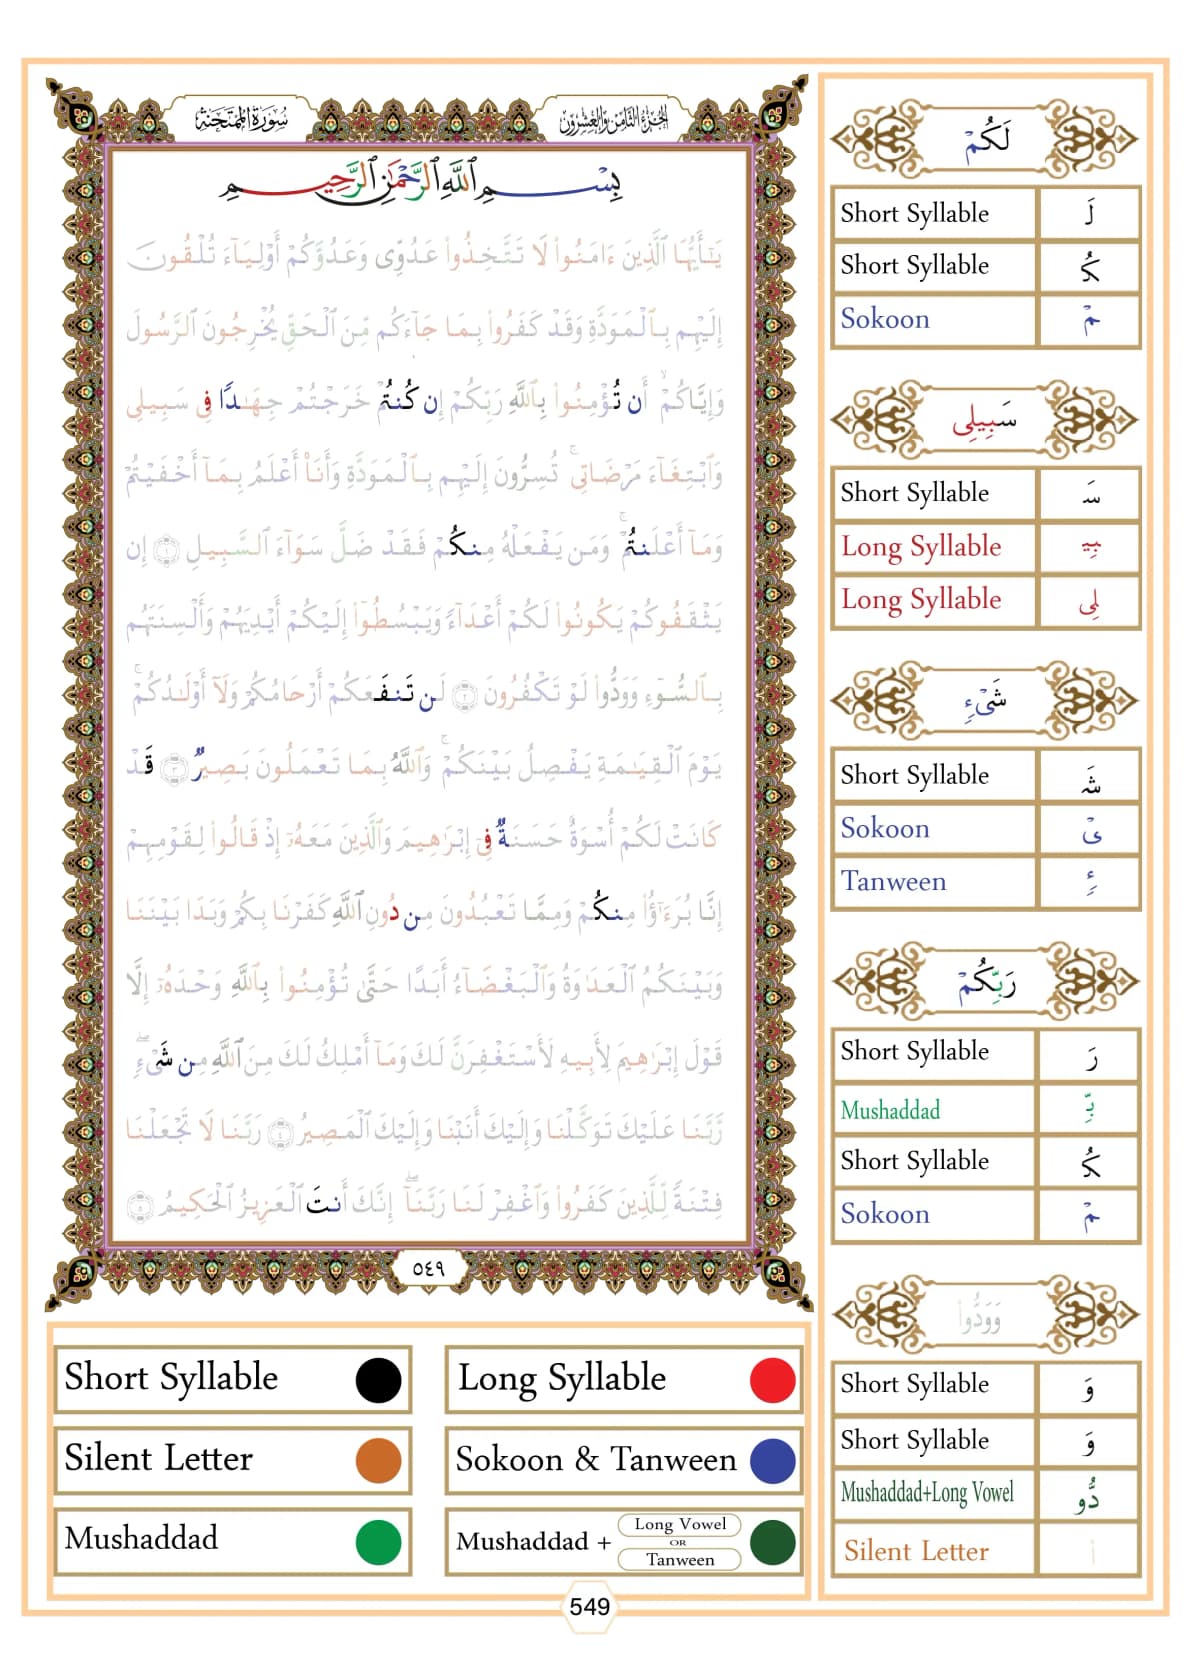 الجزء الثامن والعشرون
سورة الممتحنة
بِسْمِ ٱللَّهِ ٱلرَّحْمَٰنِ ٱلرَّحِيمِ
يَٰٓأَيُّهَا ٱلَّذِينَ ءَامَنُوا۟ لَا تَتَّخِذُوا۟ عَدُوِّى وَعَدُوَّكُمْ أَوْلِيَآءَ تُلْقُونَ
إِلَيْهِم بِٱلْمَوَدَّةِ وَقَدْ كَفَرُوا۟ بِمَا جَآءَكُم مِّنَ ٱلْحَقِّ يُخْرِجُونَ ٱلرَّسُولَ
وَإِيَّاكُمْ ۙ أَن تُؤْمِنُوا۟ بِٱللَّهِ رَبِّكُمْ إِن كُنتُمْ خَرَجْتُمْ جِهَٰدًا فِى سَبِيلِى
وَٱبْتِغَآءَ مَرْضَاتِى ۚ تُسِرُّونَ إِلَيْهِم بِٱلْمَوَدَّةِ وَأَنَا۠ أَعْلَمُ بِمَآ أَخْفَيْتُمْ
وَمَآ أَعْلَنتُمْ ۚ وَمَن يَفْعَلْهُ مِنكُمْ فَقَدْ ضَلَّ سَوَآءَ ٱلسَّبِيلِ ١ إِن
يَثْقَفُوكُمْ يَكُونُوا۟ لَكُمْ أَعْدَآءً وَيَبْسُطُوٓا۟ إِلَيْكُمْ أَيْدِيَهُمْ وَأَلْسِنَتَهُم
بِٱلسُّوٓءِ وَوَدُّوا۟ لَوْ تَكْفُرُونَ ٢ لَن تَنفَعَكُمْ أَرْحَامُكُمْ وَلَآ أَوْلَٰدُكُمْ ۚ
يَوْمَ ٱلْقِيَٰمَةِ يَفْصِلُ بَيْنَكُمْ ۚ وَٱللَّهُ بِمَا تَعْمَلُونَ بَصِيرٌ ٣ قَدْ
كَانَتْ لَكُمْ أُسْوَةٌ حَسَنَةٌ فِىٓ إِبْرَٰهِيمَ وَٱلَّذِينَ مَعَهُۥٓ إِذْ قَالُوا۟ لِقَوْمِهِمْ
إِنَّا بُرَءَٰٓؤُا۟ مِنكُمْ وَمِمَّا تَعْبُدُونَ مِن دُونِ ٱللَّهِ كَفَرْنَا بِكُمْ وَبَدَا بَيْنَنَا
وَبَيْنَكُمُ ٱلْعَدَٰوَةُ وَٱلْبَغْضَآءُ أَبَدًا حَتَّىٰ تُؤْمِنُوا۟ بِٱللَّهِ وَحْدَهُۥٓ إِلَّا
قَوْلَ إِبْرَٰهِيمَ لِأَبِيهِ لَأَسْتَغْفِرَنَّ لَكَ وَمَآ أَمْلِكُ لَكَ مِنَ ٱللَّهِ مِن شَىْءٍ ۖ
رَّبَّنَا عَلَيْكَ تَوَكَّلْنَا وَإِلَيْكَ أَنَبْنَا وَإِلَيْكَ ٱلْمَصِيرُ ٤ رَبَّنَا لَا تَجْعَلْنَا
فِتْنَةً لِّلَّذِينَ كَفَرُوا۟ وَٱغْفِرْ لَنَا رَبَّنَآ ۖ إِنَّكَ أَنتَ ٱلْعَزِيزُ ٱلْحَكِيمُ ٥
٥٤٩
لَكُمْ
Short Syllable لَ
Short Syllable كُ
Sokoon مْ
سَبِيلِى
Short Syllable سَ
Long Syllable بِي
Long Syllable لِى
شَىْءٍ
Short Syllable شَ
Sokoon ىْ
Tanween ءٍ
رَبِّكُمْ
Short Syllable رَ
Mushaddad بِّ
Short Syllable كُ
Sokoon مْ
وَوَدُّوا۟
Short Syllable وَ
Short Syllable وَ
Mushaddad+Long Vowel دُّو
Silent Letter ا۟
Short Syllable
Long Syllable
Silent Letter
Sokoon & Tanween
Mushaddad
Mushaddad + Long Vowel OR Tanween
549